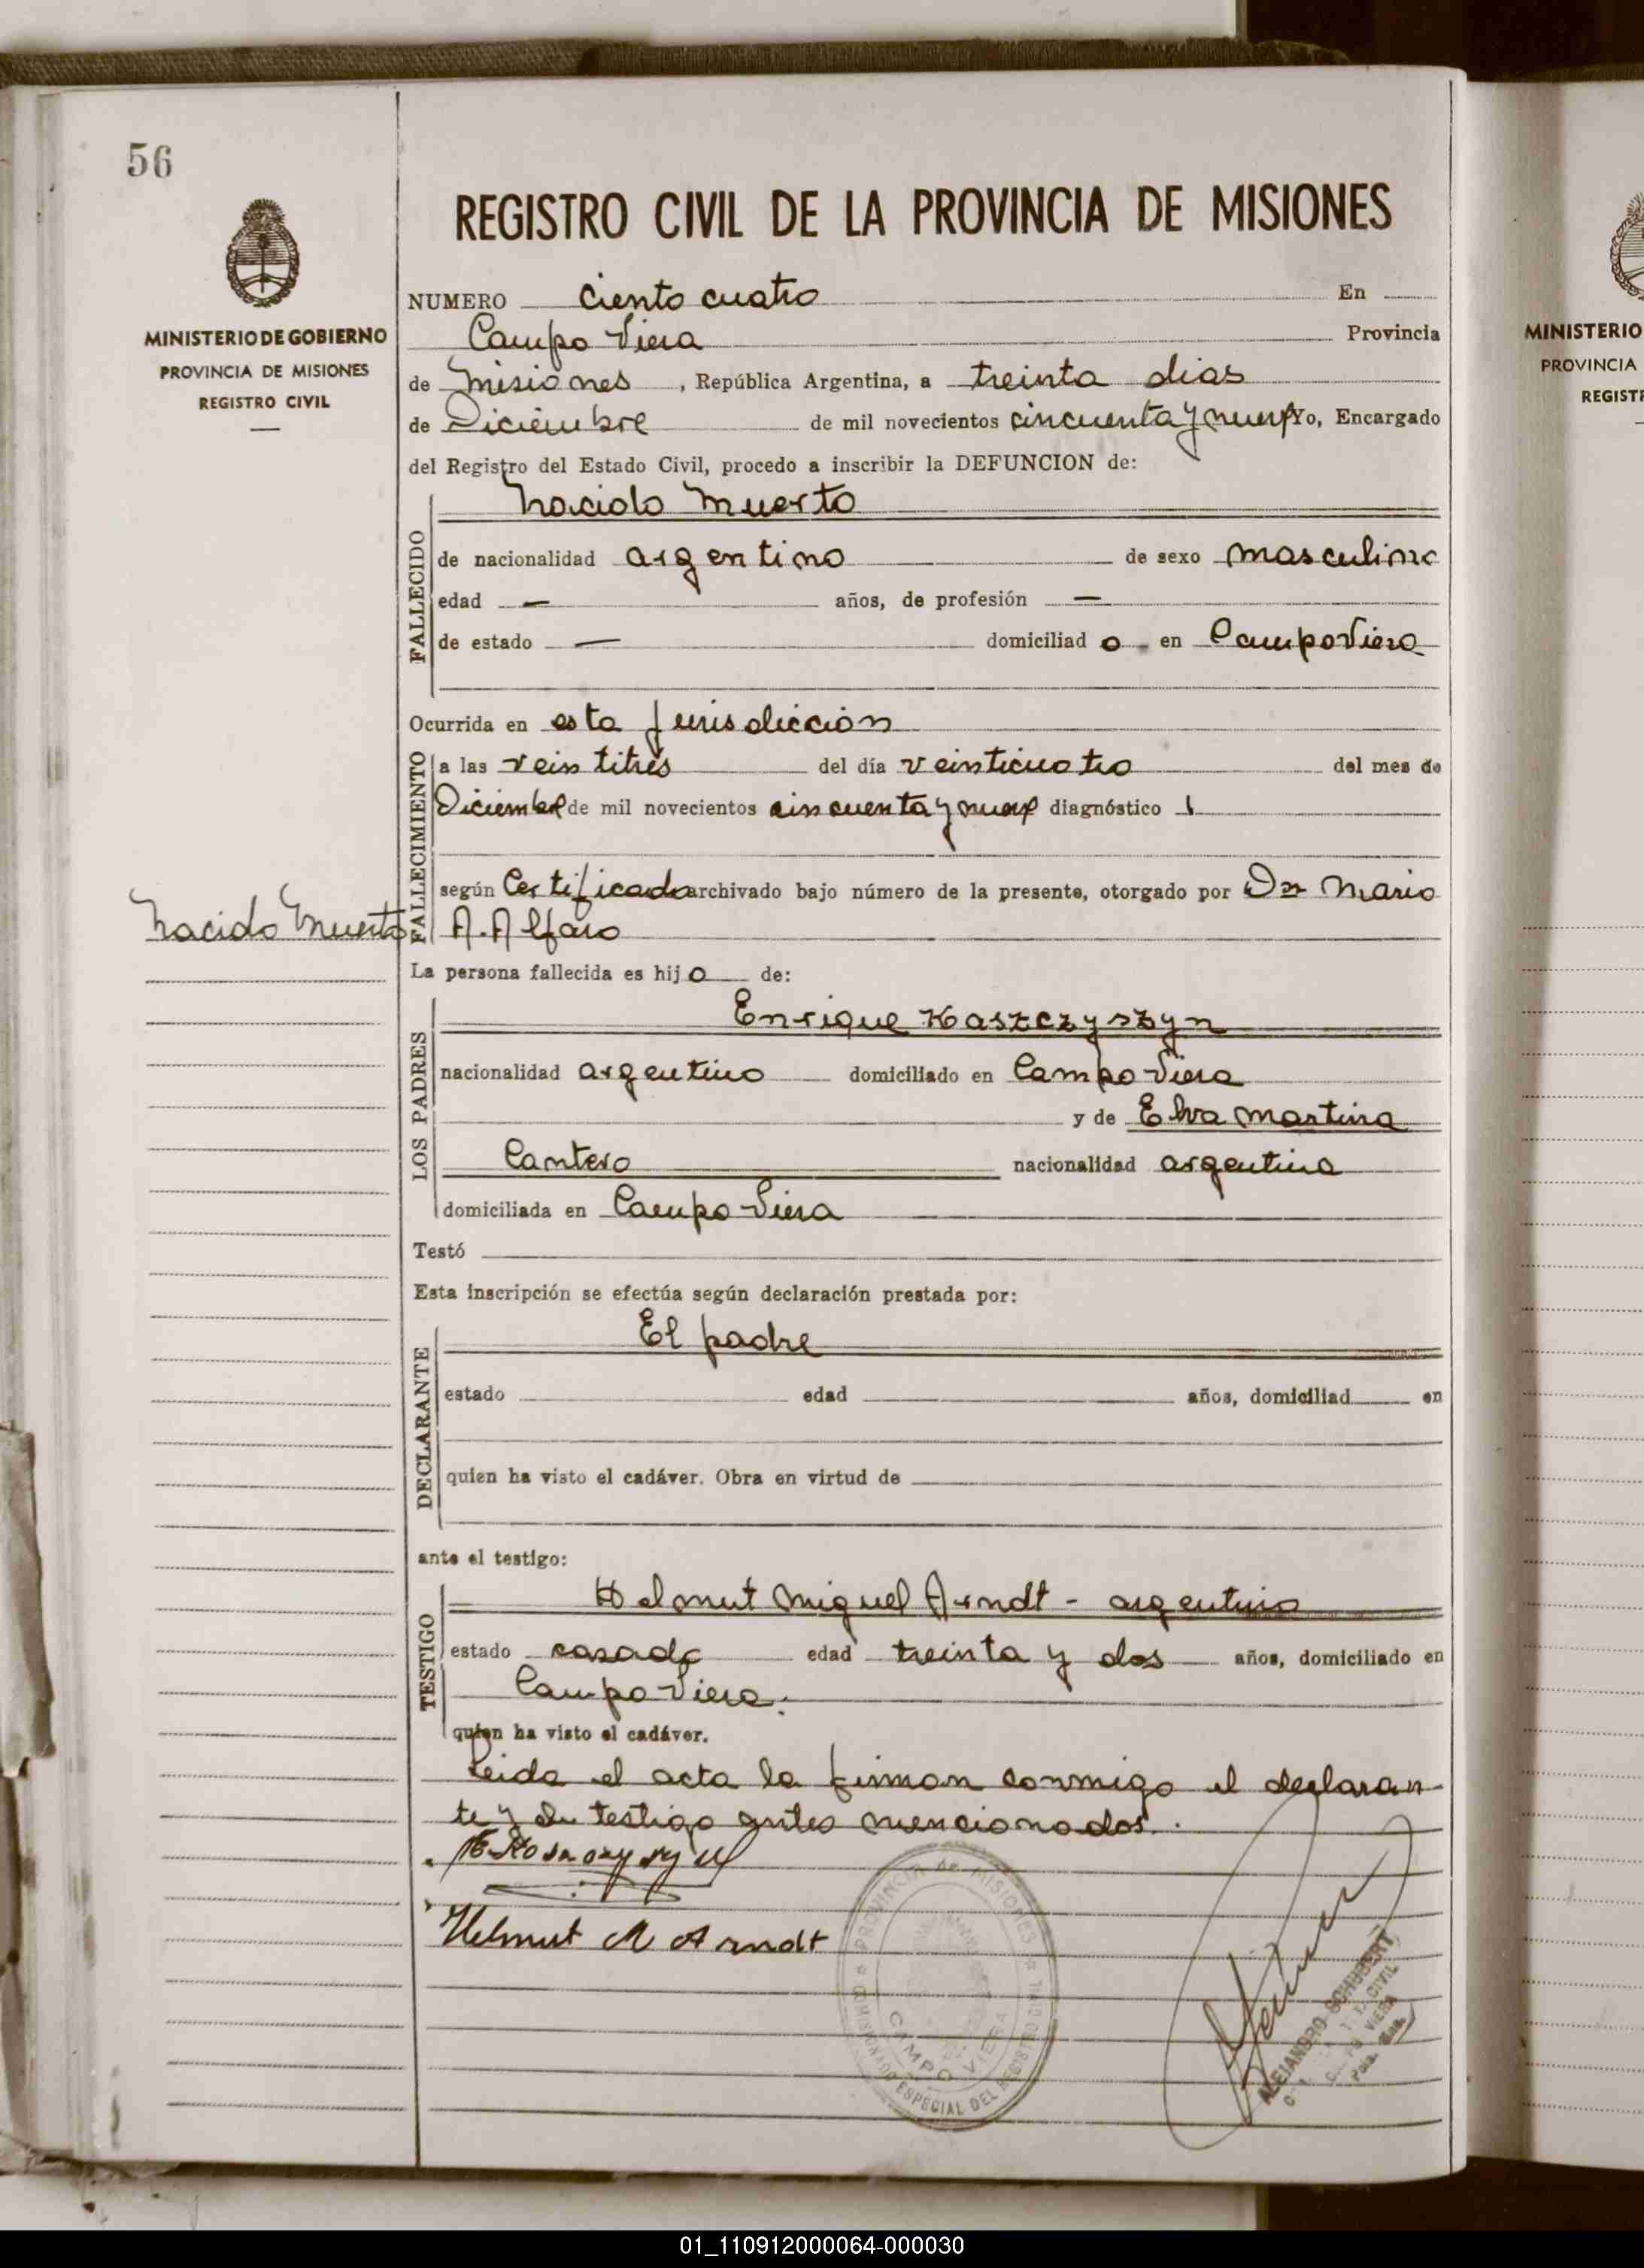 56
MINISTERIO DE GOBIERNO
PROVINCIA DE MISIONES
REGISTRO CIVIL
REGISTRO CIVIL DE LA PROVINCIA DE MISIONES
NUMERO Ciento cuatro En
Campo Viera Provincia
de Misiones, República Argentina, a treinta dias
de Diciembre de mil novecientos cincuenta y nueve Yo, Encargado
del Registro del Estado Civil, procedo a inscribir la DEFUNCION de:
FALLECIDO
Nacido Muerto
de nacionalidad argentino de sexo masculino
edad — años, de profesión —
de estado — domiciliad o en Campo Viera
Ocurrida en esta Jurisdicción
FALLECIMIENTO
a las veintitrés del día veinticuatro del mes de
Diciembre de mil novecientos cincuenta y nueve diagnóstico
según Certificado archivado bajo número de la presente, otorgado por Dr Mario
A. Alfaro
Nacido Muerto
La persona fallecida es hijo de:
LOS PADRES
Enrique Kaszczyszyn
nacionalidad argentino domiciliado en Campo Viera
y de Elva Martina
Cantero nacionalidad argentina
domiciliada en Campo Viera
Testó
Esta inscripción se efectúa según declaración prestada por:
DECLARANTE
El padre
estado edad años, domiciliad en
quien ha visto el cadáver. Obra en virtud de
ante el testigo:
TESTIGO
Helmut Miguel Arndt - argentino
estado casado edad treinta y dos años, domiciliado en
Campo Viera.
quien ha visto el cadáver.
Leida el acta la firman conmigo el declaran
te y el testigo antes mencionados.
Helmut M Arndt
PROVINCIA de MISIONES
COMISIONADO ESPECIAL DEL REGISTRO CIVIL
CAMPO VIERA
ALEJANDRO SCHUBERT
MINISTERIO
PROVINCIA
REGISTR
01_110912000064-000030